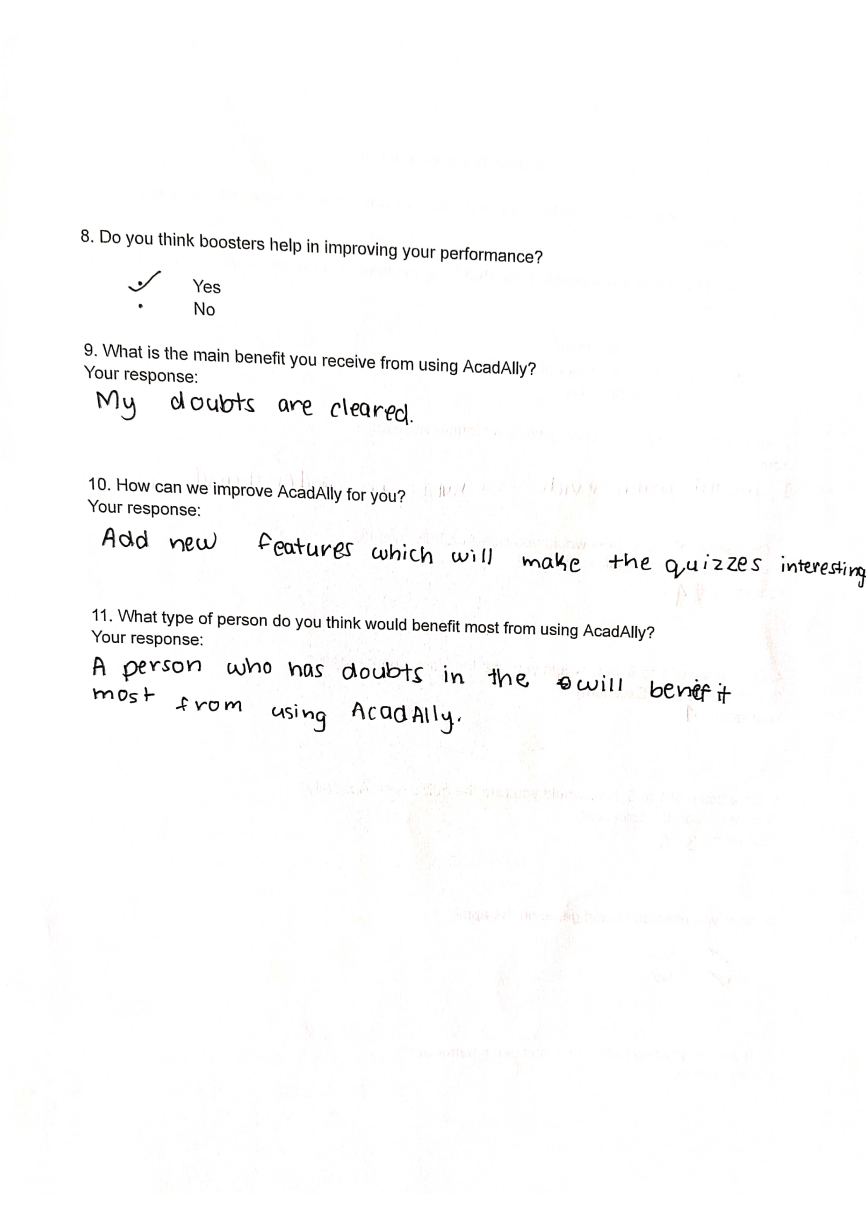 8. Do you think boosters help in improving your performance?
Yes
No
9. What is the main benefit you receive from using AcadAlly?
Your response:
My doubts are cleared.
10. How can we improve AcadAlly for you?
Your response:
Add new features which will make the quizzes interesting
11. What type of person do you think would benefit most from using AcadAlly?
Your response:
A person who has doubts in the will benefit
most from using AcadAlly.